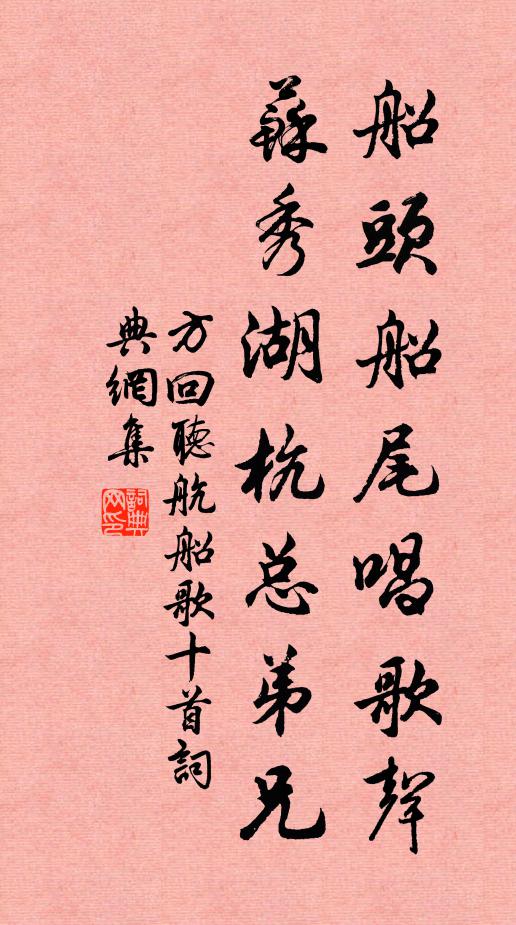 船頭船尾唱歌聲
蘇秀湖杭总弟兄
方回聽航船歌十首詞
典網集
詞典網印